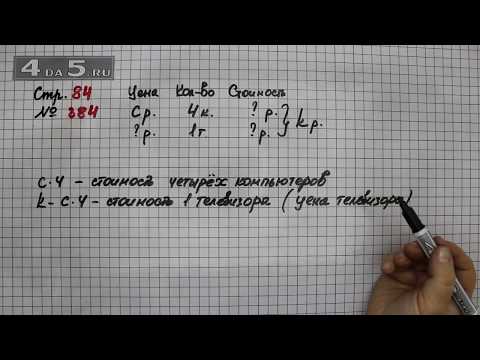 4 DA 5.RU
Стр. 84 Цена Кол-во Стоимость
№ 384 С р. 4 к. ? р. } k р.
? р. 1 т ? р.
С·4 - стоимость четырёх компьютеров
k - С·4 - стоимость 1 телевизора (цена телевизора)